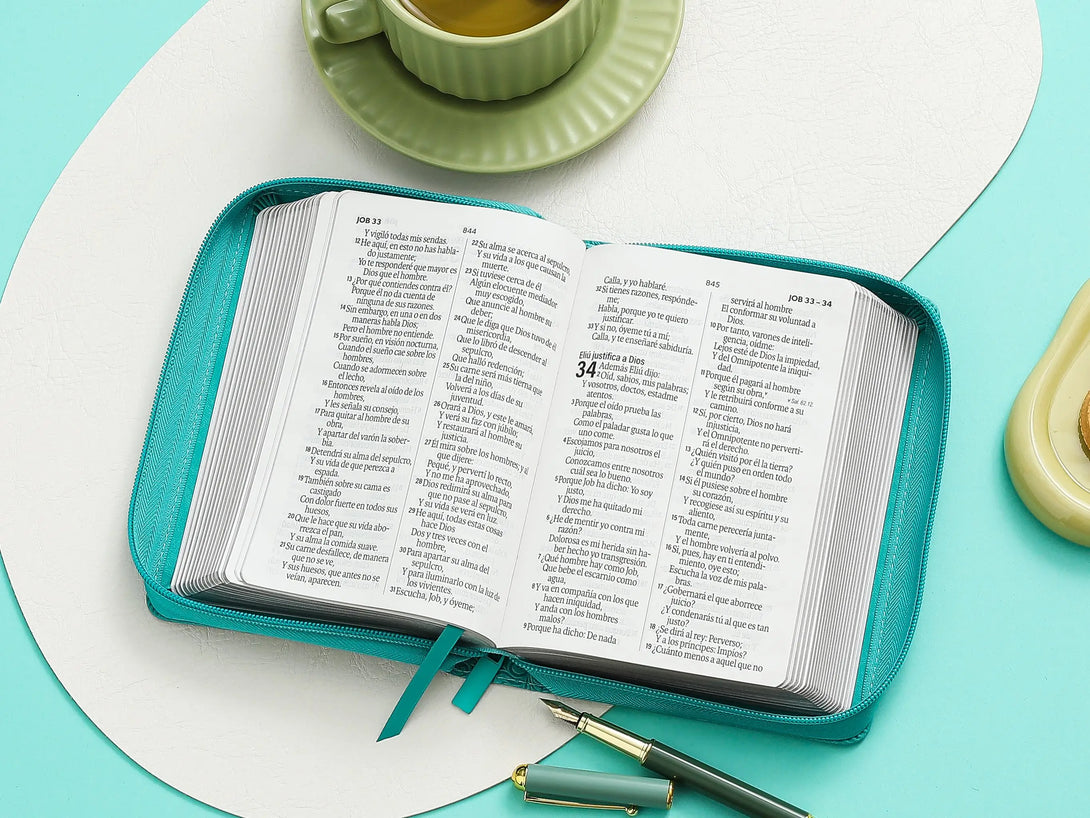 JOB 33
844
Y vigiló todas mis sendas.
12 He aquí, en esto no has habla-
do justamente;
Yo te responderé que mayor es
Dios que el hombre.
13 ¿Por qué contiendes contra él?
Porque él no da cuenta de
ninguna de sus razones.
14 Sin embargo, en una o en dos
maneras habla Dios;
Pero el hombre no entiende.
15 Por sueño, en visión nocturna,
Cuando el sueño cae sobre los
hombres,
Cuando se adormecen sobre
el lecho,
16 Entonces revela al oído de los
hombres,
Y les señala su consejo,
17 Para quitar al hombre de su
obra,
Y apartar del varón la sober-
bia.
18 Detendrá su alma del sepulcro,
Y su vida de que perezca a
espada.
19 También sobre su cama es
castigado
Con dolor fuerte en todos sus
huesos,
20 Que le hace que su vida abo-
rrezca el pan,
Y su alma la comida suave.
21 Su carne desfallece, de manera
que no se ve,
Y sus huesos, que antes no se
veían, aparecen.
22 Su alma se acerca al sepulcro,
Y su vida a los que causan la
muerte.
23 Si tuviese cerca de él
Algún elocuente mediador
muy escogido,
Que anuncie al hombre su
deber;
24 Que le diga que Dios tuvo de él
misericordia,
Que lo libró de descender al
sepulcro,
Que halló redención;
25 Su carne será más tierna que
la del niño,
Volverá a los días de su
juventud.
26 Orará a Dios, y este le amará,
Y verá su faz con júbilo;
Y restaurará al hombre su
justicia.
27 Él mira sobre los hombres, y al
que dijere:
Pequé, y pervertí lo recto,
Y no me ha aprovechado,
28 Dios redimirá su alma para
que no pase al sepulcro,
Y su vida se verá en luz.
29 He aquí, todas estas cosas
hace Dios
Dos y tres veces con el
hombre,
30 Para apartar su alma del
sepulcro,
Y para iluminarlo con la luz de
los vivientes.
31 Escucha, Job, y óyeme;
845
JOB 33 – 34
Calla, y yo hablaré.
32 Si tienes razones, respónde-
me;
Habla, porque yo te quiero
justificar.
33 Y si no, óyeme tú a mí;
Calla, y te enseñaré sabiduría.
Eliú justifica a Dios
34 Además Eliú dijo:
2 Oíd, sabios, mis palabras;
Y vosotros, doctos, estadme
atentos.
3 Porque el oído prueba las
palabras,
Como el paladar gusta lo que
uno come.
4 Escojamos para nosotros el
juicio,
Conozcamos entre nosotros
cuál sea lo bueno.
5 Porque Job ha dicho: Yo soy
justo,
Y Dios me ha quitado mi
derecho.
6 ¿He de mentir yo contra mi
razón?
Dolorosa es mi herida sin ha-
ber hecho yo transgresión.
7 ¿Qué hombre hay como Job,
Que bebe el escarnio como
agua,
8 Y va en compañía con los que
hacen iniquidad,
Y anda con los hombres
malos?
9 Porque ha dicho: De nada
servirá al hombre
El conformar su voluntad a
Dios.
10 Por tanto, varones de inteli-
gencia, oídme:
Lejos esté de Dios la impiedad,
Y del Omnipotente la iniqui-
dad.
11 Porque él pagará al hombre
según su obra,
Sal. 62.12
Y le retribuirá conforme a su
camino.
12 Sí, por cierto, Dios no hará
injusticia,
Y el Omnipotente no perverti-
rá el derecho.
13 ¿Quién visitó por él la tierra?
¿Y quién puso en orden todo
el mundo?
14 Si él pusiese sobre el hombre
su corazón,
Y recogiese así su espíritu y su
aliento,
15 Toda carne perecería junta-
mente,
Y el hombre volvería al polvo.
16 Si, pues, hay en ti entendi-
miento, oye esto;
Escucha la voz de mis pala-
bras.
17 ¿Gobernará el que aborrece
juicio?
¿Y condenarás tú al que es tan
justo?
18 ¿Se dirá al rey: Perverso;
Y a los príncipes: Impíos?
19 ¿Cuánto menos a aquel que no